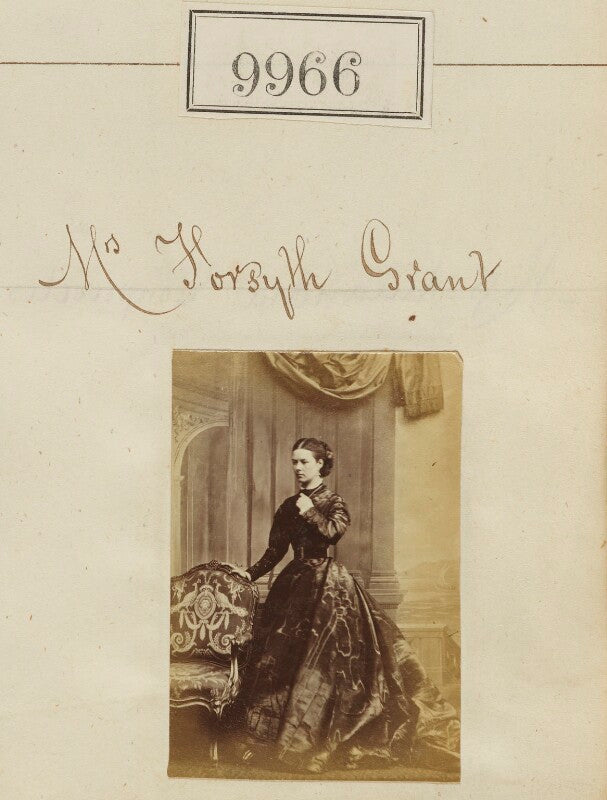 9966
Mrs Forsyth Grant